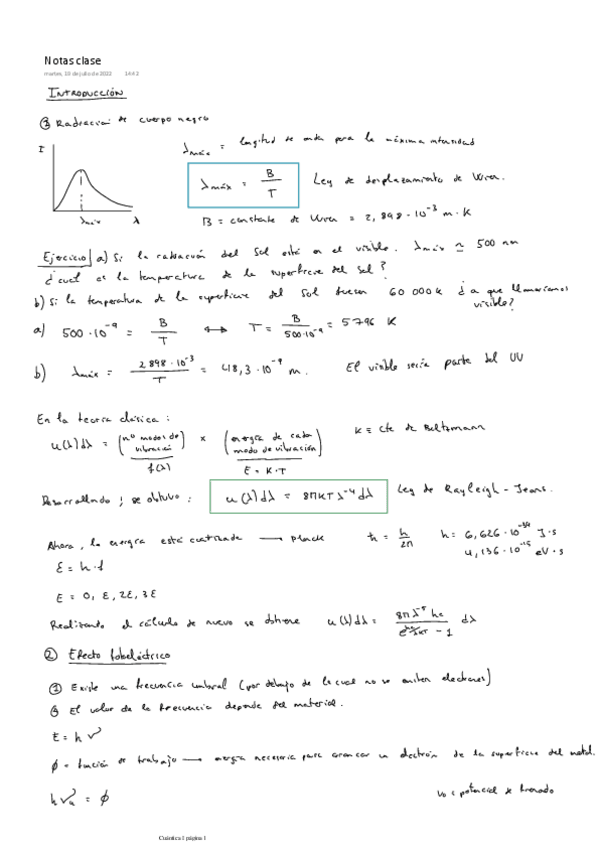 Notas clase
martes, 19 de julio de 2022 14:42
INTRODUCCIÓN
① Radiación de cuerpo negro
I
λmáx
λ
λmáx = longitud de onda para la máxima intensidad
λmáx = B/T Ley de desplazamiento de Wien.
B = constante de Wien = 2,898·10⁻³ m·K
Ejercicio a) Si la radiación del Sol está en el visible. λmáx ≃ 500 nm
¿cuál es la temperatura de la superficie del Sol?
b) Si la temperatura de la superficie del Sol fuesen 60 000 K ¿a que llamaríamos visible?
a) 500·10⁻⁹ = B/T ↔ T = B/500·10⁻⁹ = 5796 K
b) λmáx = 2,898·10⁻³/T = 48,3·10⁻⁹ m. El visible sería parte del UV
En la teoría clásica:
u(λ)dλ = (nº modos de vibración) × (energía de cada modo de vibración) K ≡ Cte de Boltzmann
f(λ) E = K·T
Desarrollando, se obtuvo: u(λ)dλ = 8πKTλ⁻⁴dλ Ley de Rayleigh-Jeans.
Ahora, la energía está cuantizada → planck ħ = h/2π h = 6,626·10⁻³⁴ J·s
4,136·10⁻¹⁵ eV·s
ε = h·f
E = 0, ε, 2ε, 3ε
Realizando el cálculo de nuevo se obtiene u(λ)dλ = 8πλ⁻⁵hc/(e^(hc/λKT) − 1) dλ
② Efecto fotoeléctrico
① Existe una frecuencia umbral (por debajo de la cual no se emiten electrones)
El valor de la frecuencia depende del material.
E = hν
φ = función de trabajo → energía necesaria para arrancar un electrón de la superficie del metal.
hνᵤ = φ V₀ = potencial de frenado
Cuántica I página 1